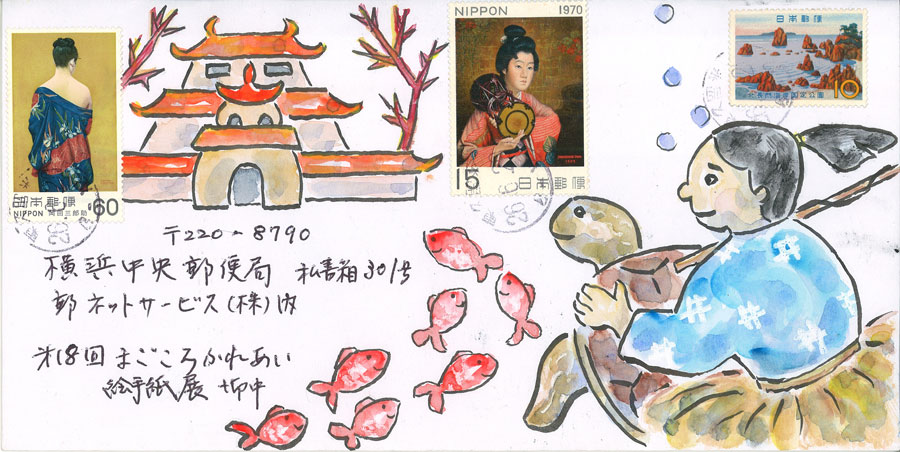 NIPPON 1970
日本郵便
北長門海岸国定公園
10
日本郵便
NIPPON 岡田三郎助
60
15 日本郵便
〒220-8790
横浜中央郵便局 私書箱301号
郵ネットサービス(株)内
第18回 まごころふれあい
絵手紙展 御中